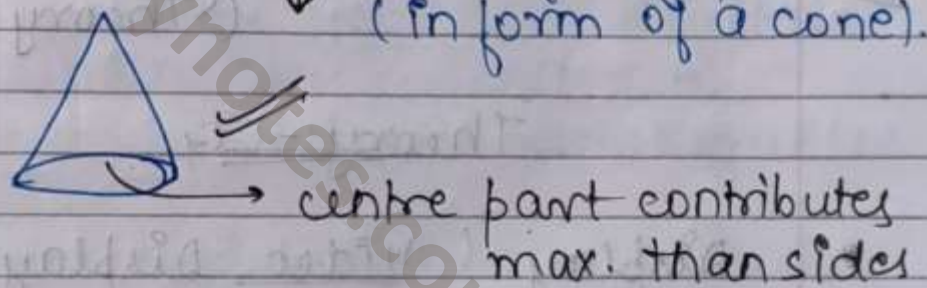 (in form of a cone).
centre part contributes
max. than sides
ynotes.co